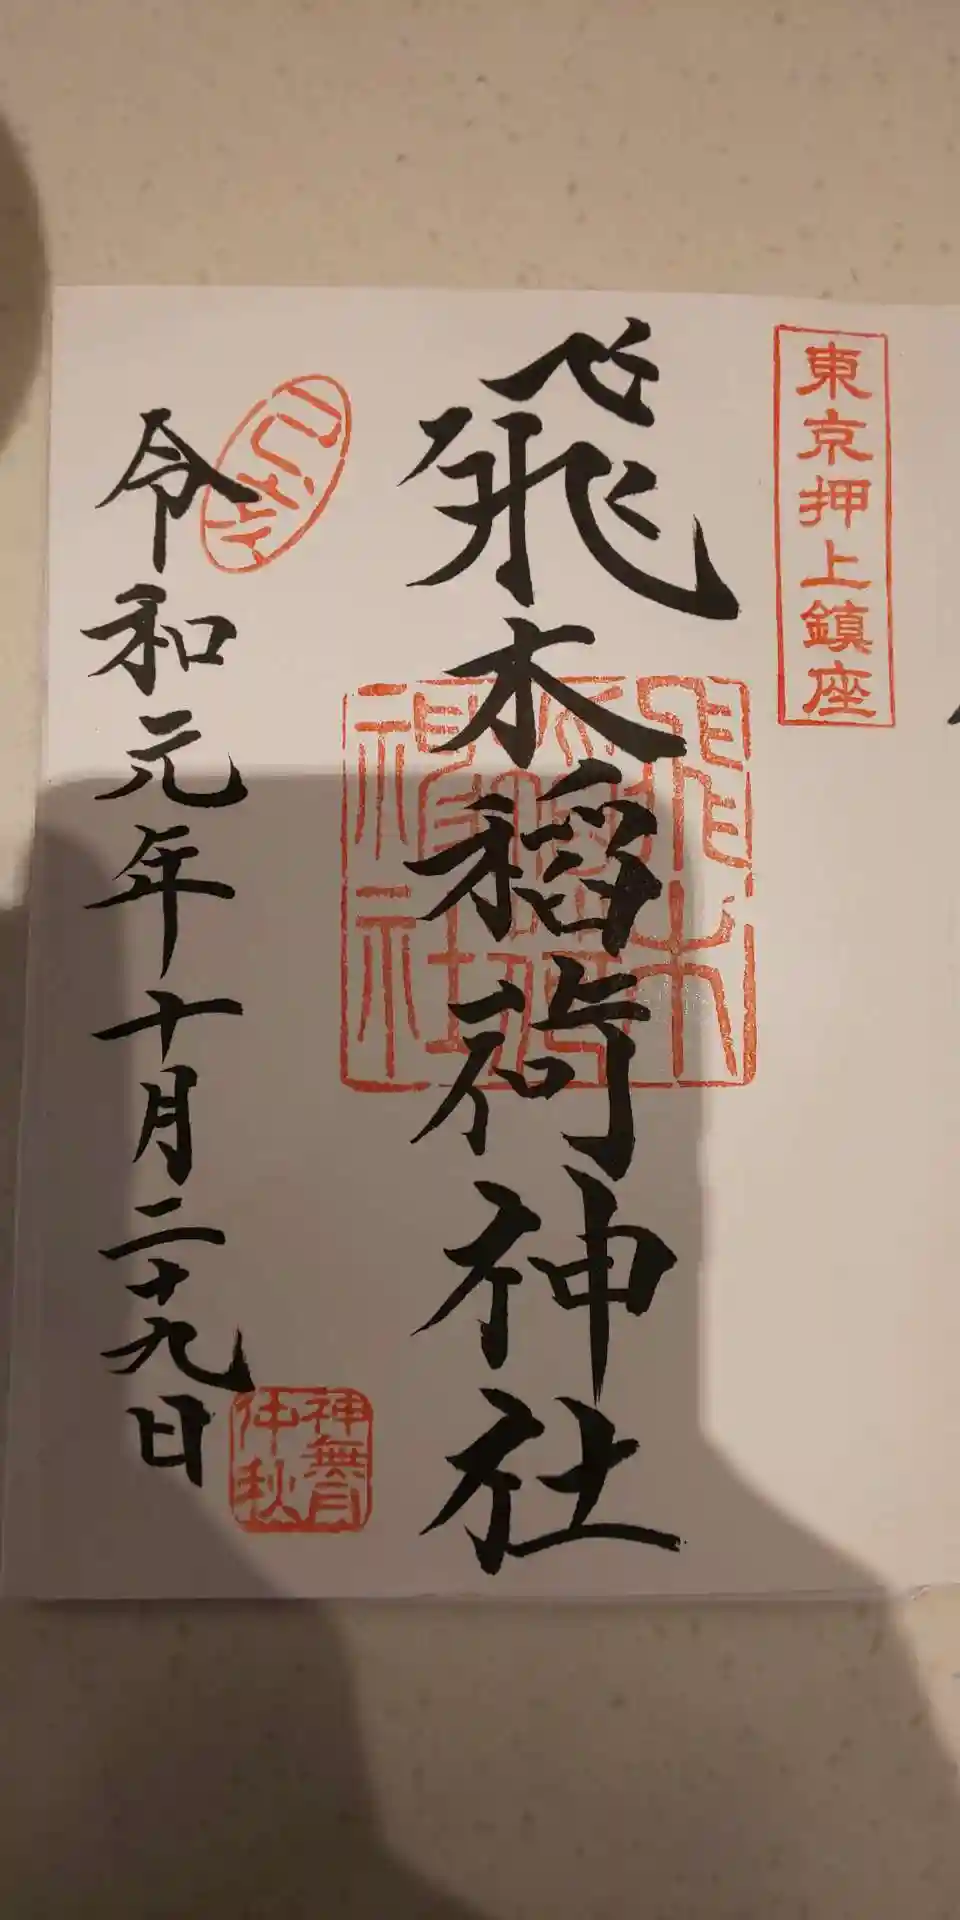 東京押上鎮座
飛木稲荷神社
飛木
稲荷
神社
令和元年十月二十九日
神無月
仲秋